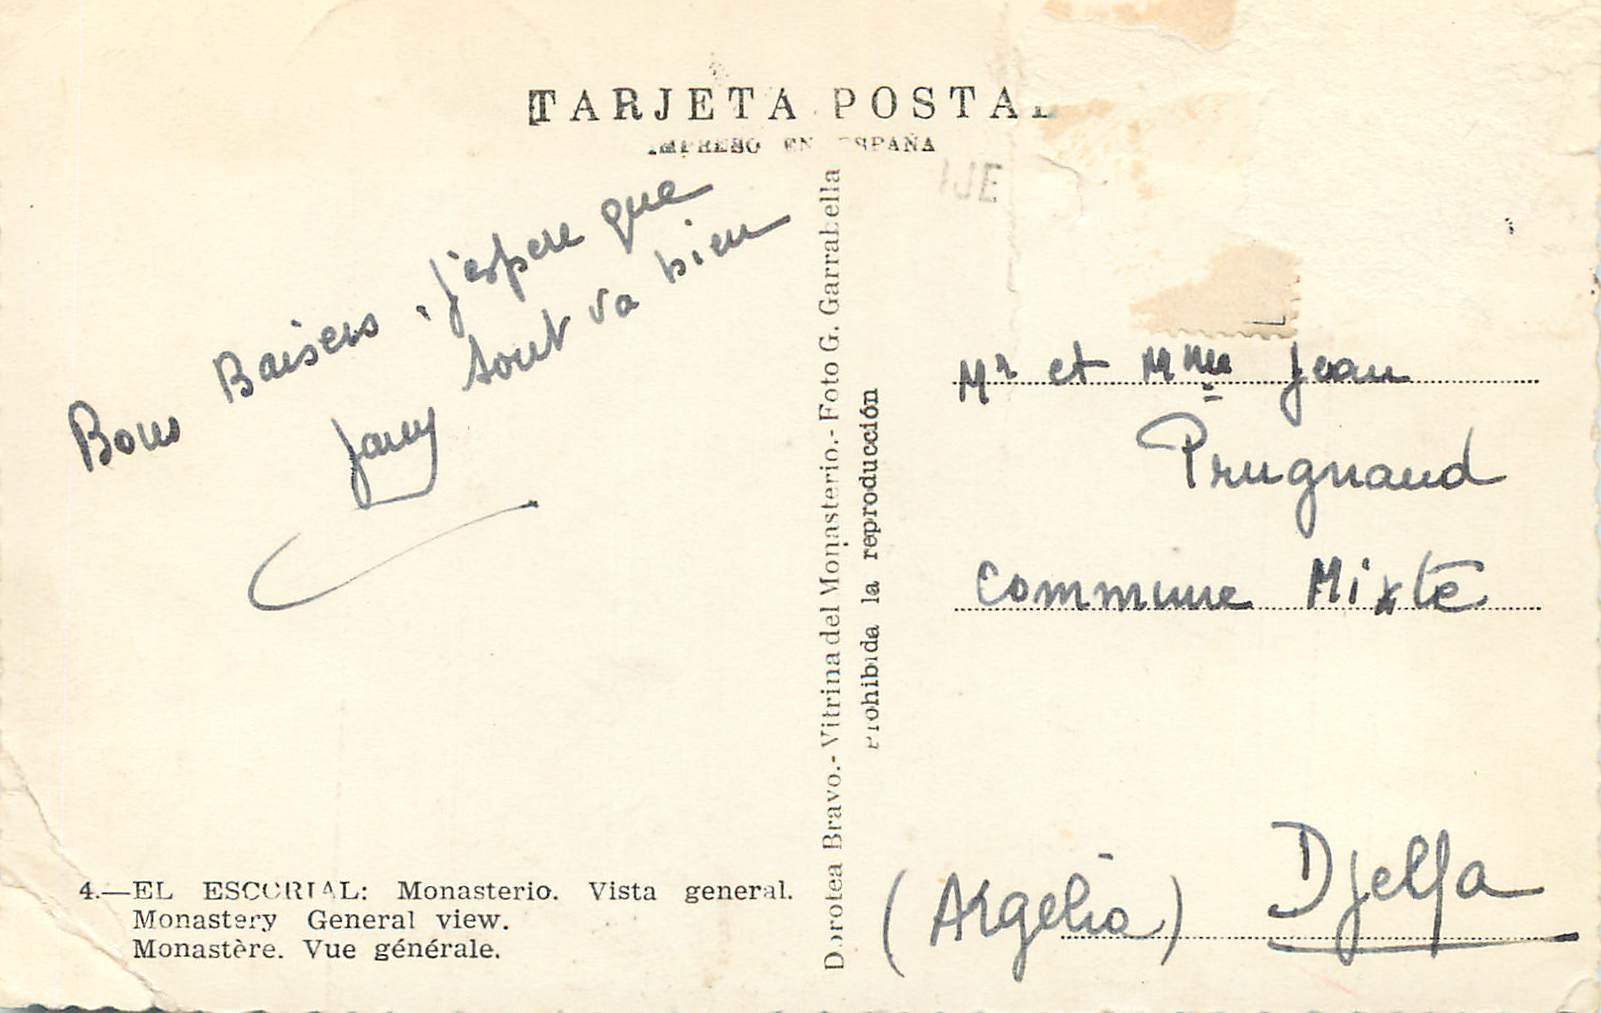 TARJETA POSTAL
IMPRESO EN ESPAÑA
IJE
Bons Baisers, j'espère que
tout va bien
Jany
Dorotea Bravo.- Vitrina del Monasterio.- Foto G. Garrabella
Prohibida la reproducción
Mr et Mme Jean
Prugnaud
Commune Mixte
Djelfa
(Argelia)
4.—EL ESCORIAL: Monasterio. Vista general.
Monastery General view.
Monastère. Vue générale.